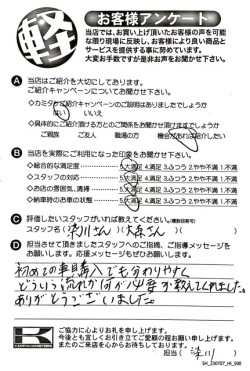 軽
お客様アンケート
当店では、お買い上げ頂いたお客様の声を可能
な限り現場に反映し、お客様により良い商品と
サービスを提供する事に努めています。
大変お手数ですが是非お声をお聞かせ下さい。
A 当店はご紹介を大切にしております。
ご紹介キャンペーンについてお聞かせ下さい。
はい いいえ
◇具体的にご紹介頂ける方とのご関係をお聞かせ頂けますでしょうか
ご家族 ご友人 職場の方 機会があれば紹介したい
B 当店を実際にご利用になった印象をお聞かせ下さい。
◇総合的な満足度 5.大満足 4.満足 3.ふつう 2.やや不満 1.不満
◇スタッフの対応 5.大満足 4.満足 3.ふつう 2.やや不満 1.不満
◇お店の雰囲気、清掃 5.大満足 4.満足 3.ふつう 2.やや不満 1.不満
◇納車時のお車の状態 5.大満足 4.満足 3.ふつう 2.やや不満 1.不満
C 評価したいスタッフがいれば教えてください。(複数回答可)
スタッフ名( 深川さん )( 大森さん )
D 担当させて頂きましたスタッフへのご指摘、ご指導メッセージを
お願いします。応援メッセージもぜひお願いします。
初めての車購入でも分わりやすく
どういう流れか何が必要か教えてくれました。
ありがとうございました。
K
ご協力に心よりお礼を申し上げます。
今後とも宜しくお引き立てご愛顧の程お願い申し上げます。
またのご来店を心からお待ちしております。
担当( 深川 )
SH_230707_HI_500